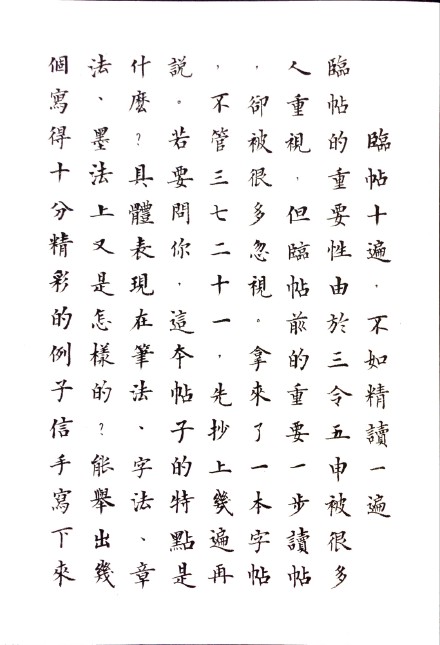 臨帖十遍，不如精讀一遍
臨帖的重要性由於三令五申被很多
人重視，但臨帖前的重要一步讀帖
，卻被很多忽視。拿來了一本字帖
，不管三七二十一，先抄上幾遍再
說。若要問你，這本帖子的特點是
什麽？具體表現在筆法、字法、章
法、墨法上又是怎樣的？能舉出幾
個寫得十分精彩的例子信手寫下來